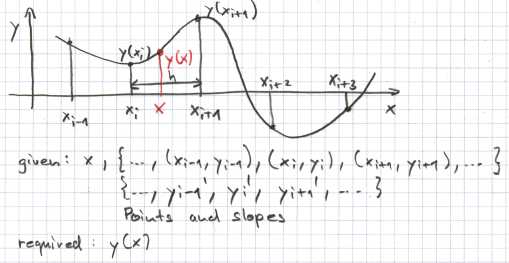 y
y(x_{i+1})
y(x_i)
y(x)
h
x_{i-1}
x_i
x
x_{i+1}
x_{i+2}
x_{i+3}
x
given: x, {..., (x_{i-1}, y_{i-1}), (x_i, y_i), (x_{i+1}, y_{i+1}), ...}
{..., y_{i-1}', y_i', y_{i+1}', ...}
Points and slopes
required: y(x)